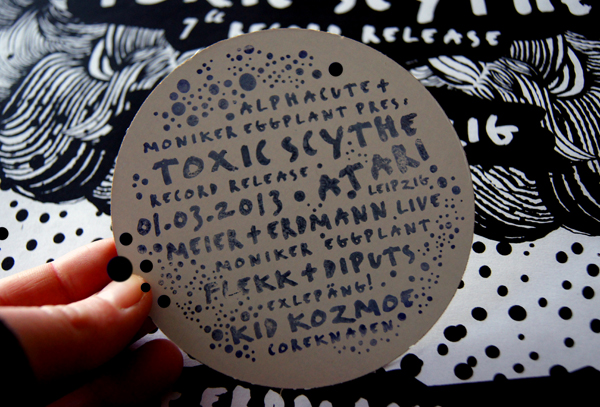 TOXIC SCYTHE
7" RECORD RELEASE
ALPHACUTE +
MONIKER EGGPLANT PRES,
TOXIC SCYTHE
RECORD RELEASE • ATARI
LEIPZIG
01.03.2013 •
MEIER + ERDMANN LIVE
MONIKER EGGPLANT
FLEKK + DIPUTS
EXLEPÄNG!
KID KOZMOE
COREKNABEN